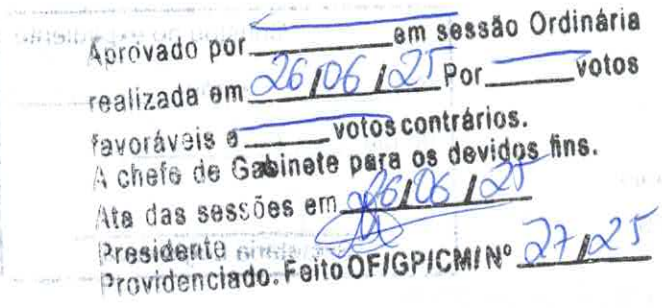 Aprovado por________em sessão Ordinária
realizada em 26/06/25 Por_____votos
favoráveis e______votos contrários.
A chefe de Gabinete para os devidos fins.
Ata das sessões em 26/06/25
Presidente
Providenciado. Feito OF/GP/CMI Nº 27/25